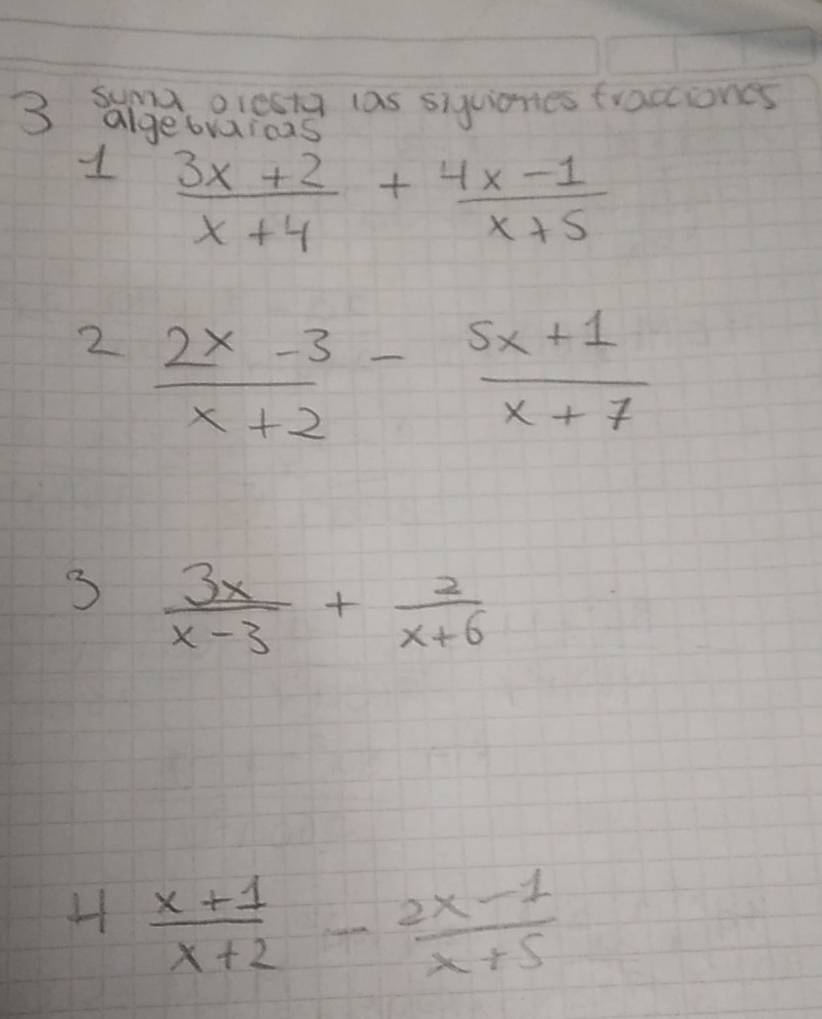 3 suma o resta las siguientes fracciones
algebraicas
1 3x + 2 / x + 4 + 4x - 1 / x + 5
2 2x - 3 / x + 2 - 5x + 1 / x + 7
3 3x / x - 3 + 2 / x + 6
4 x + 1 / x + 2 - 2x - 1 / x + 5